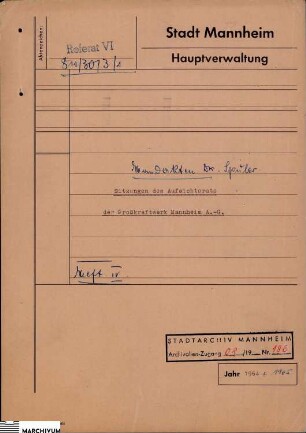 Aktenzeichen:
Stadt Mannheim
Referat VI
Hauptverwaltung
Handakten Dr. Spuler
Sitzungen des Aufsichtsrats
der Großkraftwerk Mannheim A.-G.
Heft IV
STADTARCHIV MANNHEIM
Archivalien-Zugang /19 Nr. 196
Jahr 1964 - 1965
MARCHIVUM